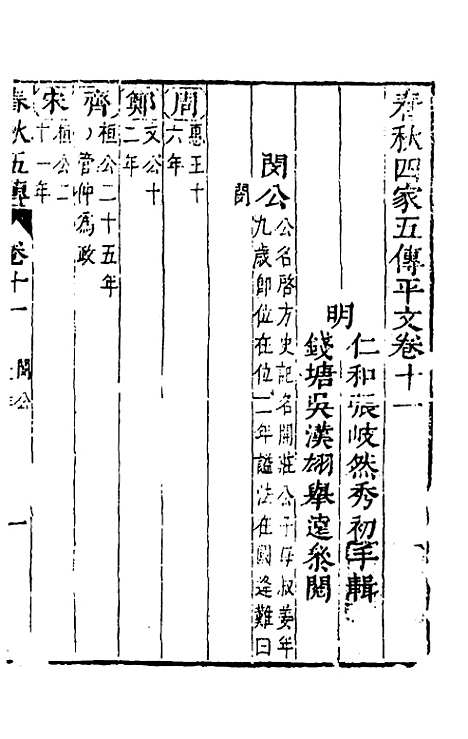 春秋四家五傳平文卷十一
明
仁和張岐然秀初手輯
錢塘吳漢翊舉遠叅閱
閔公
公名啓方史記名開莊公子母叔姜年
九歲卽位在位二年謚法在國逢難曰
閔
周
惠王十
六年
鄭
文公十
二年
齊
桓公二十五年
管仲爲政
宋
桓公二
十一年
春秋五傳
卷十一
閔公
一